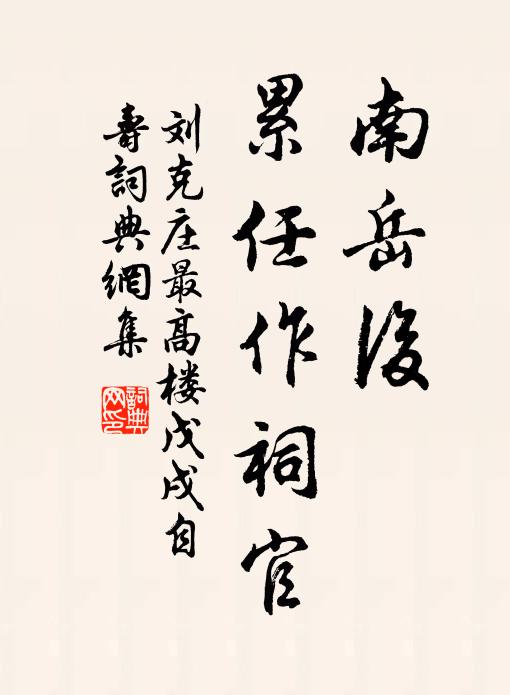 南岳後
累任作祠官
刘克庄最高楼戊戌自
壽詞典網集
詞典
网印